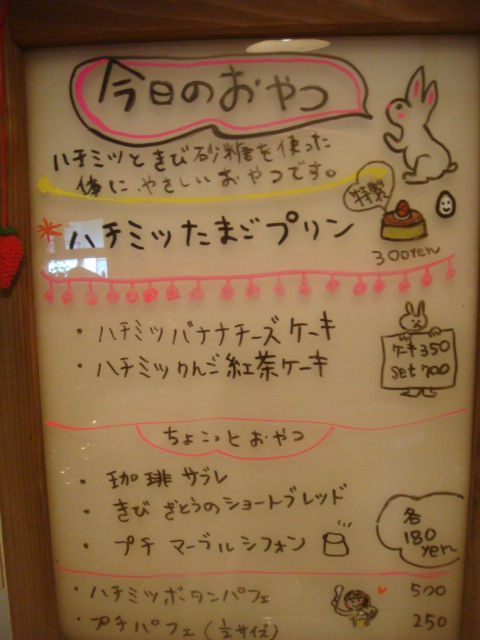 今日のおやつ
ハチミツときび砂糖を使った
体に やさしい おやつです。
特製
ハチミツたまごプリン
300yen
・ハチミツバナナチーズケーキ
・ハチミツりんご紅茶ケーキ
ケーキ350
set 700
ちょこっとおやつ
・珈琲サブレ
・きびざとうのショートブレッド
・プチマーブルシフォン
各
180
yen
・ハチミツボタンパフェ 500
・プチパフェ(1/2サイズ) 250